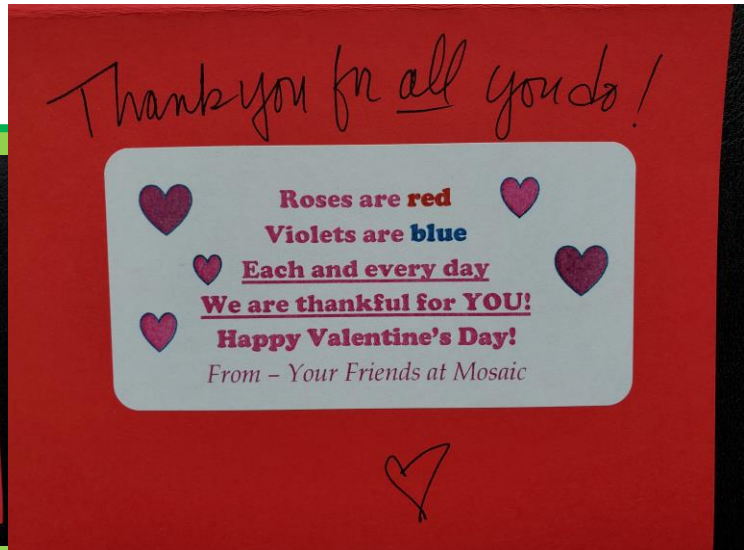 Thank you for all you do!
Roses are red
Violets are blue
Each and every day
We are thankful for YOU!
Happy Valentine's Day!
From – Your Friends at Mosaic